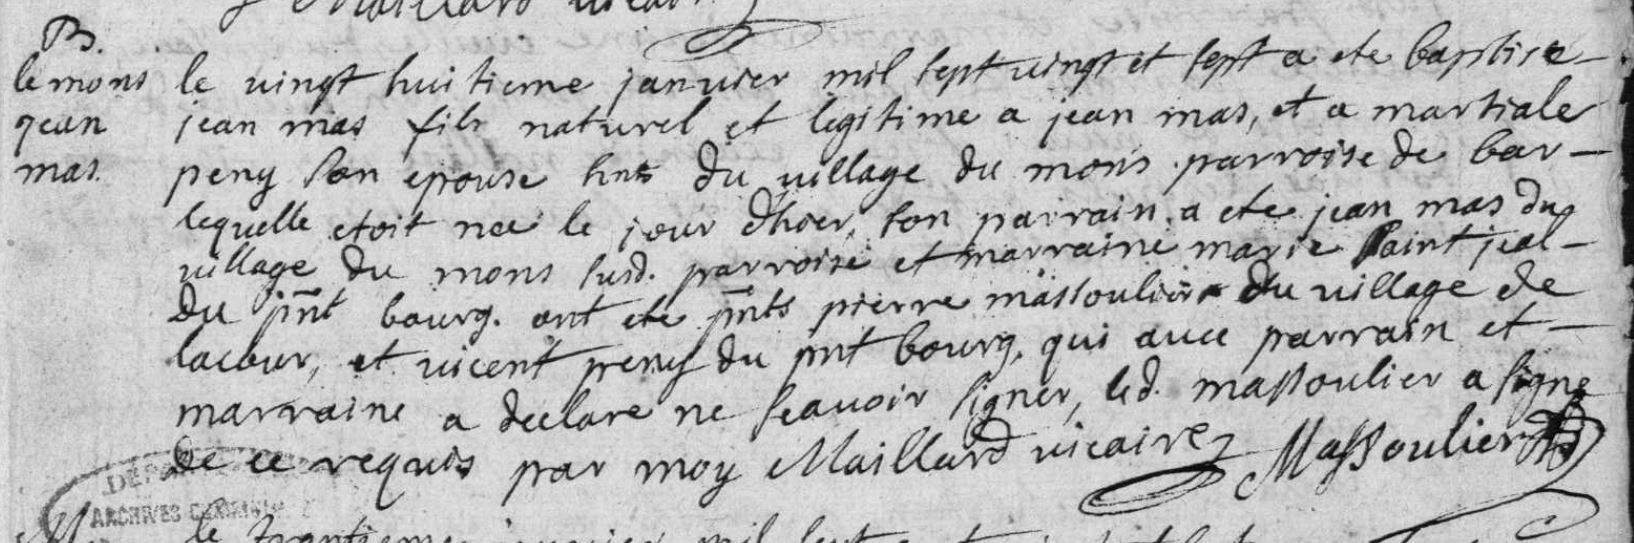 Maillard vicaire
B.
lemons
jean
mas.
le vingt huitieme janvier mil sept vingt et sept a ete baptise
jean mas fils naturel et legitime a jean mas, et a martiale
peny son epouse hnts du village du mons parroise de bar
lequelle etoit nee le jour d'hier, son parrain a ete jean mas du
village du mons susd. parroise et marraine marie saint jeal
du pnt bourg. ont ete pnts pierre massoulier du village de
lacour, et vicent peny du pnt bourg. qui avec parrain et
marraine a declare ne scavoir signer, led. massoulier a signe
de ce requis par moy Maillard vicaire Massoulier
ARCHIVES
le trantieme janvier mil sept